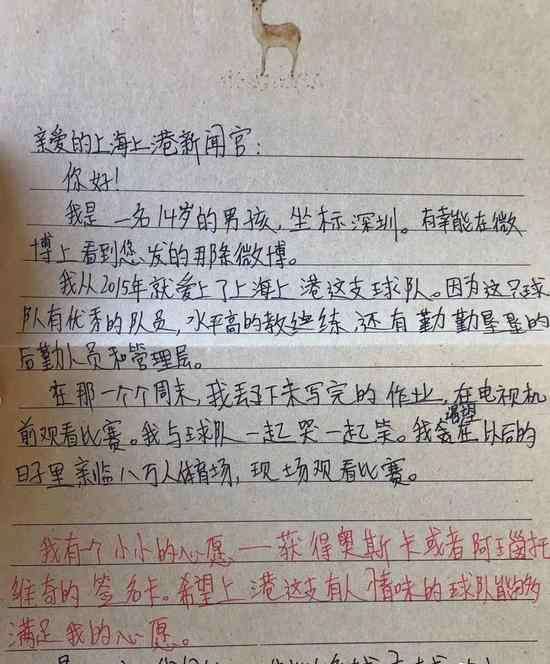 亲爱的上海上港新闻官：
你好！
我是一名14岁的男孩，坐标深圳。有幸能在微
博上看到您发的那条微博。
我从2015年就爱上了上海上港这支球队。因为这只球
队有优秀的队员，水平高的教练，还有勤勤垦垦的
后勤人员和管理层。
在那一个个周末，我丢下未写完的作业，在电视机
前观看比赛。我与球队一起哭一起笑。我渴望在以后的
日子里亲临八万人体育场，现场观看比赛。
我有个小小的心愿——获得奥斯卡或者阿瑙托
维奇的签名卡。希望上港这支有人情味的球队能够
满足我的心愿。